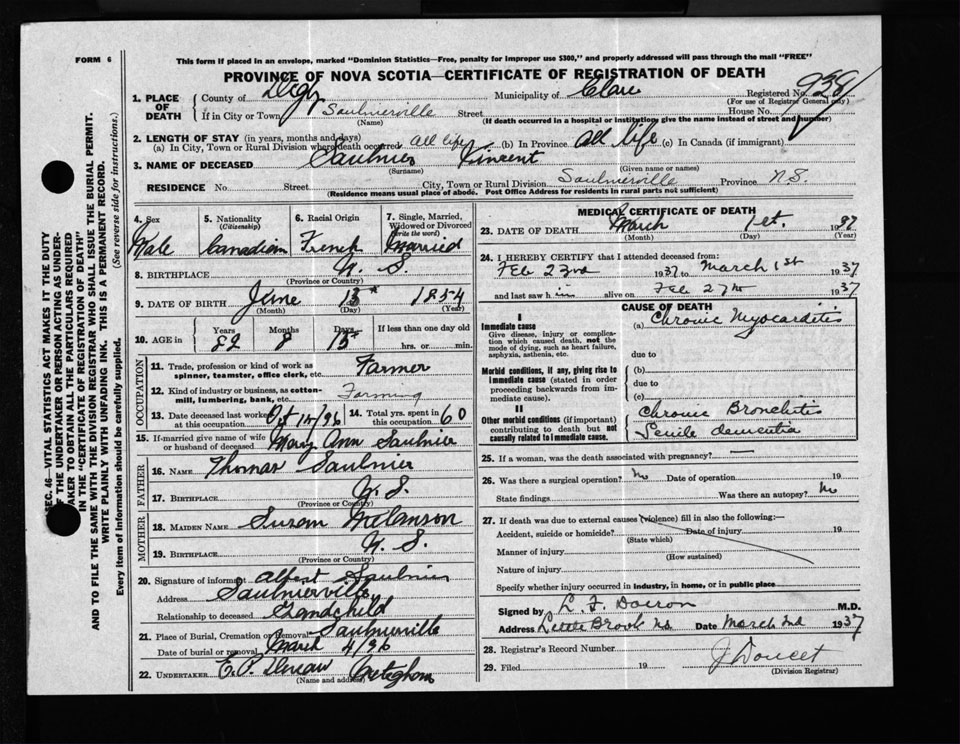 FORM 6
This form if placed in an envelope, marked "Dominion Statistics—Free, penalty for improper use $300," and properly addressed will pass through the mail "FREE"
PROVINCE OF NOVA SCOTIA—CERTIFICATE OF REGISTRATION OF DEATH
Registered No. 928
(For use of Registrar General only)
1. PLACE OF DEATH
County of Digby Municipality of Clare
If in City or Town Saulnierville Street House No.
(Name) (If death occurred in a hospital or institution give the name instead of street and number)
2. LENGTH OF STAY (in years, months and days)
(a) In City, Town or Rural Division where death occurred all life (b) In Province All life (c) In Canada (if immigrant)
3. NAME OF DECEASED Saulnier Vincent
(Surname) (Given name or names)
RESIDENCE No. Street City, Town or Rural Division Saulnierville Province N.S.
(Residence means usual place of abode. Post Office Address for residents in rural parts not sufficient)
SEC. 46—VITAL STATISTICS ACT MAKES IT THE DUTY
OF THE UNDERTAKER OR PERSON ACTING AS UNDER-
TAKER TO OBTAIN ALL THE PARTICULARS REQUIRED
IN THE "CERTIFICATE OF REGISTRATION OF DEATH"
AND TO FILE THE SAME WITH THE DIVISION REGISTRAR WHO SHALL ISSUE THE BURIAL PERMIT.
WRITE PLAINLY WITH UNFADING INK. THIS IS A PERMANENT RECORD.
Every item of information should be carefully supplied. (See reverse side for instructions.)
4. Sex
Male
5. Nationality
(Citizenship)
Canadian
6. Racial Origin
French
7. Single, Married, Widowed or Divorced
(Write the word)
Married
8. BIRTHPLACE N. S.
(Province or Country)
9. DATE OF BIRTH June 13 1854
(Month) (Day) (Year)
10. AGE in Years Months Days If less than one day old
82 8 15 hrs. or min.
OCCUPATION
11. Trade, profession or kind of work as
spinner, teamster, office clerk, etc. Farmer
12. Kind of industry or business, as cotton-
mill, lumbering, bank, etc. Farming
13. Date deceased last worked at this occupation Oct
14. Total yrs. spent in this occupation 60
15. If married give name of wife or husband of deceased Mary Ann Saulnier
FATHER
16. NAME Thomas Saulnier
17. BIRTHPLACE N. S.
(Province or Country)
MOTHER
18. MAIDEN NAME Susan Melanson
19. BIRTHPLACE N. S.
(Province or Country)
20. Signature of informant Albert Saulnier
Address Saulnierville
Relationship to deceased Grandchild
21. Place of Burial, Cremation or Removal Saulnierville
Date of burial or removal March 4/
22. UNDERTAKER E. P. Meteghan
(Name and address)
MEDICAL CERTIFICATE OF DEATH
23. DATE OF DEATH March 1st. 1937
(Month) (Day) (Year)
24. I HEREBY CERTIFY that I attended deceased from:
Feb 23rd 1937 to March 1st 1937
and last saw him alive on Feb 27th 1937
CAUSE OF DEATH
I
Immediate cause
Give disease, injury or complica-
tion which caused death, not the
mode of dying, such as heart failure,
asphyxia, asthenia, etc.
(a) Chronic Myocarditis
due to
Morbid conditions, if any, giving rise to
immediate cause (stated in order
proceeding backwards from im-
mediate cause).
(b)
due to
(c)
II
Other morbid conditions (if important)
contributing to death but not
causally related to immediate cause.
Chronic Bronchitis
Senile dementia
25. If a woman, was the death associated with pregnancy? —
26. Was there a surgical operation? No Date of operation 19
State findings Was there an autopsy? No
27. If death was due to external causes (violence) fill in also the following:—
Accident, suicide or homicide? Date of injury 19
(State which)
Manner of injury
(How sustained)
Nature of injury
Specify whether injury occurred in industry, in home, or in public place
Signed by L. F. Doiron M.D.
Address Little Brook N.S. Date March 2nd 1937
28. Registrar's Record Number
29. Filed 19 J Doucet
(Division Registrar)